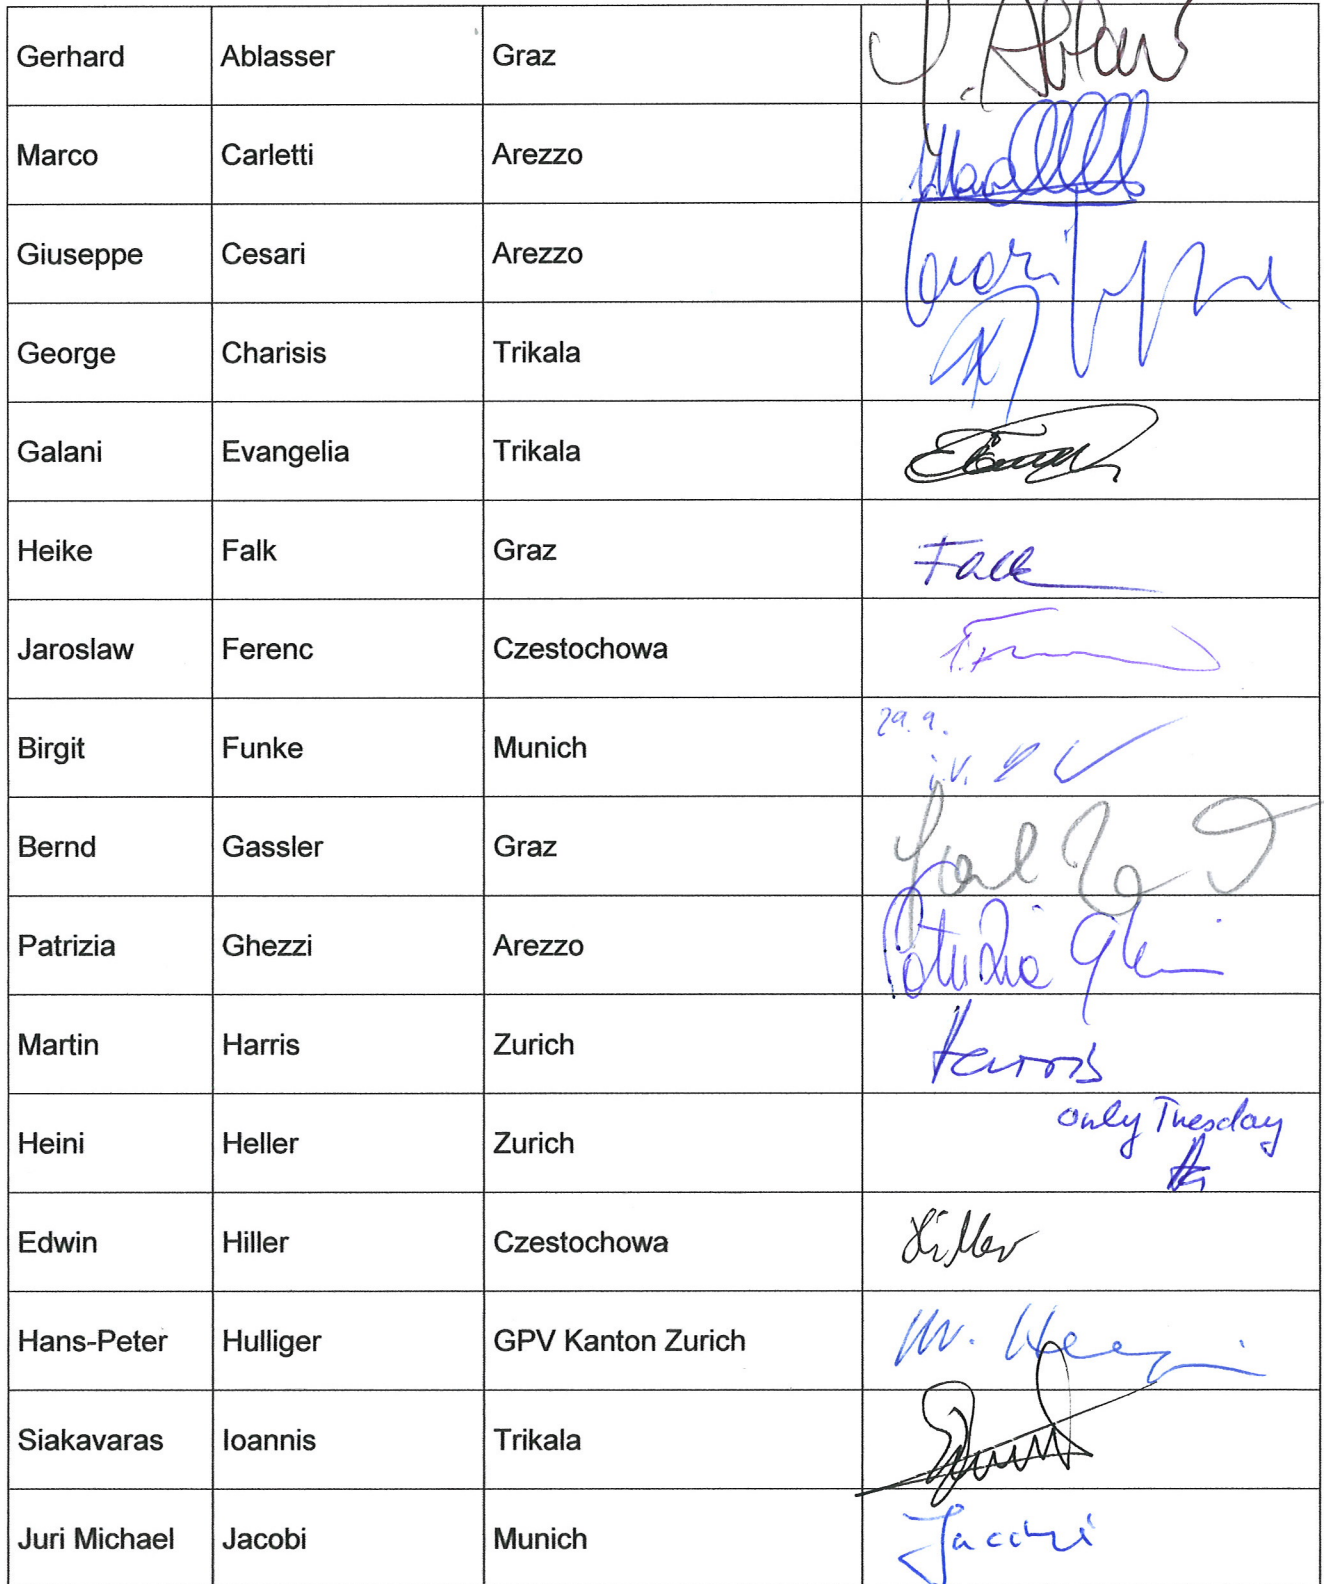 Gerhard Ablasser Graz
Marco Carletti Arezzo
Giuseppe Cesari Arezzo
George Charisis Trikala
Galani Evangelia Trikala
Heike Falk Graz Falk
Jaroslaw Ferenc Czestochowa
Birgit Funke Munich 29.9.
i.V.
Bernd Gassler Graz
Patrizia Ghezzi Arezzo Patrizia
Martin Harris Zurich Harris
Heini Heller Zurich only Tuesday
Edwin Hiller Czestochowa Hiller
Hans-Peter Hulliger GPV Kanton Zurich
Siakavaras Ioannis Trikala
Juri Michael Jacobi Munich Jacobi